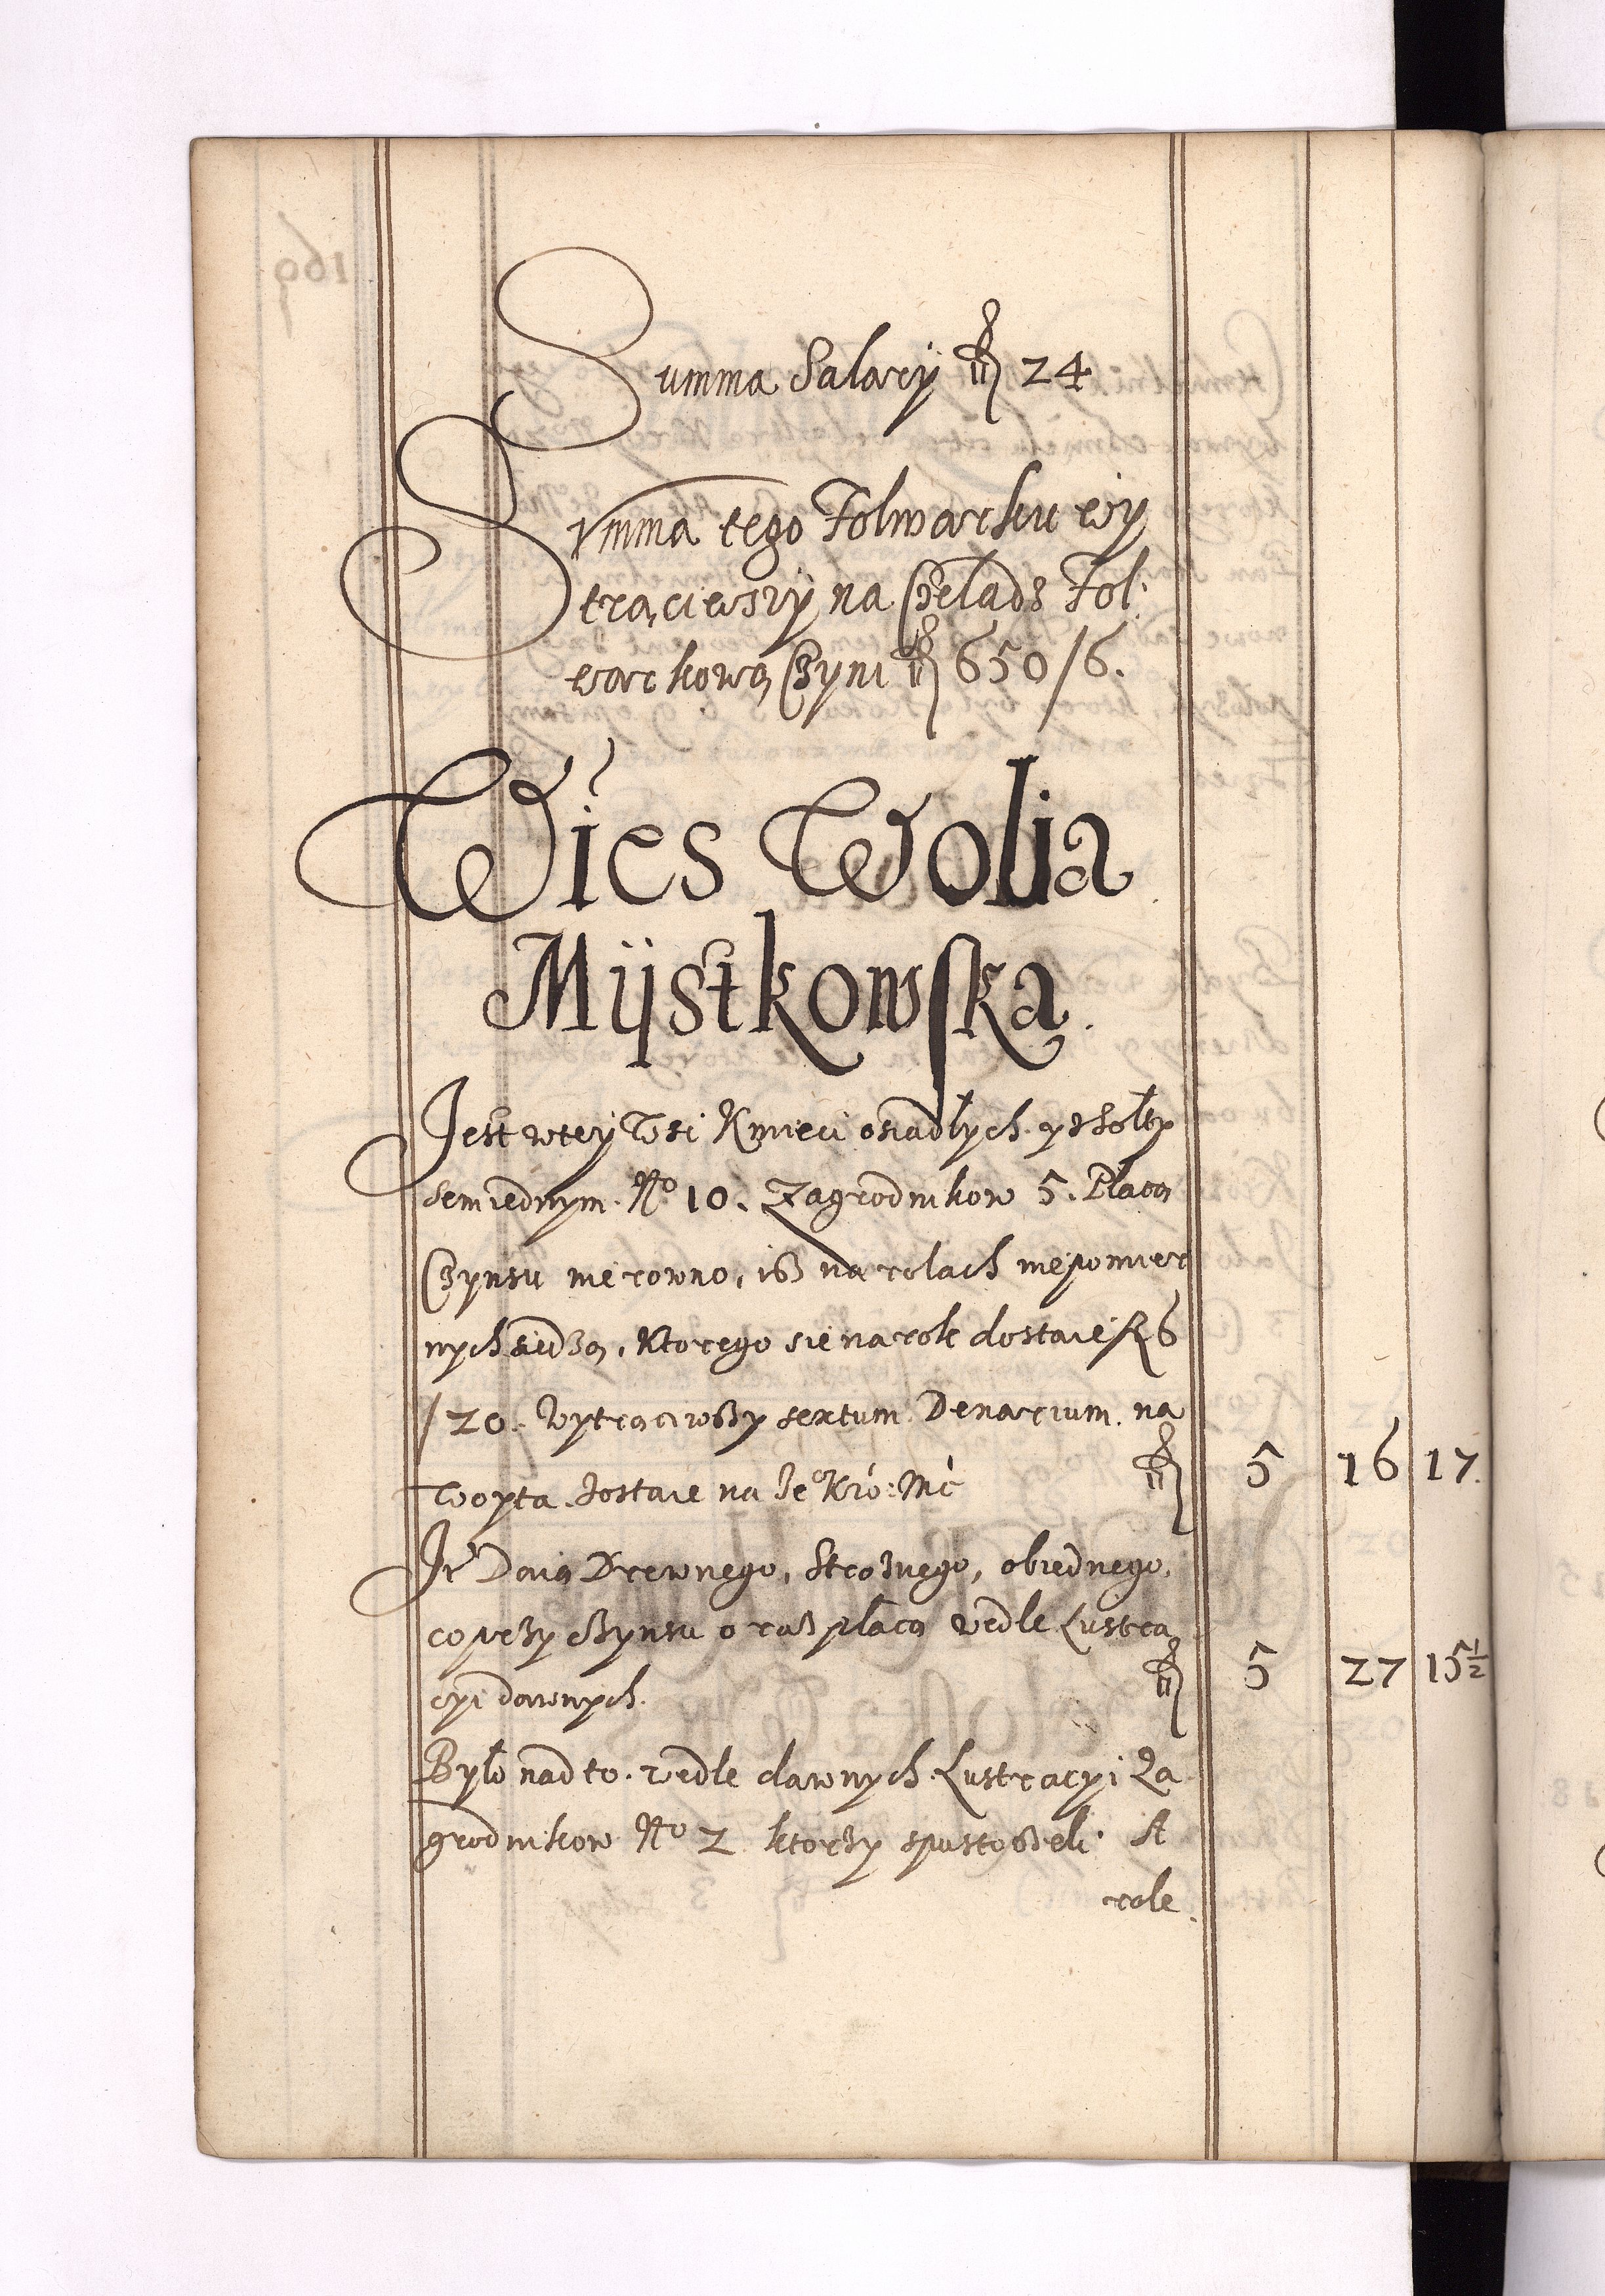 Summa Salary fl 24
Summa tego Folwarku wy
traciwszy na Czeladz Fol:
warkową Czyni fl 650/6.
Wies Wolia
Mÿstkowska.
Jest w tey Wsi Kmieci osiadłych y s Sołty
sem iednym. No 10. Zagrodnikow 5. Płacą
Czynsu nie rowno, isz na rolach niepomier
nych siedzą, Ktorego sie na rok dostaie fl 6
/20. Wytrąciwszy sextum Denarium na
Woyta dostaie na Je° Kró: Mć fl 5 16 17.
It Daią Drewnego, Strożnego, obiednego,
co przy czynsu oraz płacą wedle Lustra
cyi dawnych. fl 5 27 15½
Było nad to wedle dawnych Lustracyi Za
grodnikow No 2 ktorzy spustoszeli A
role.